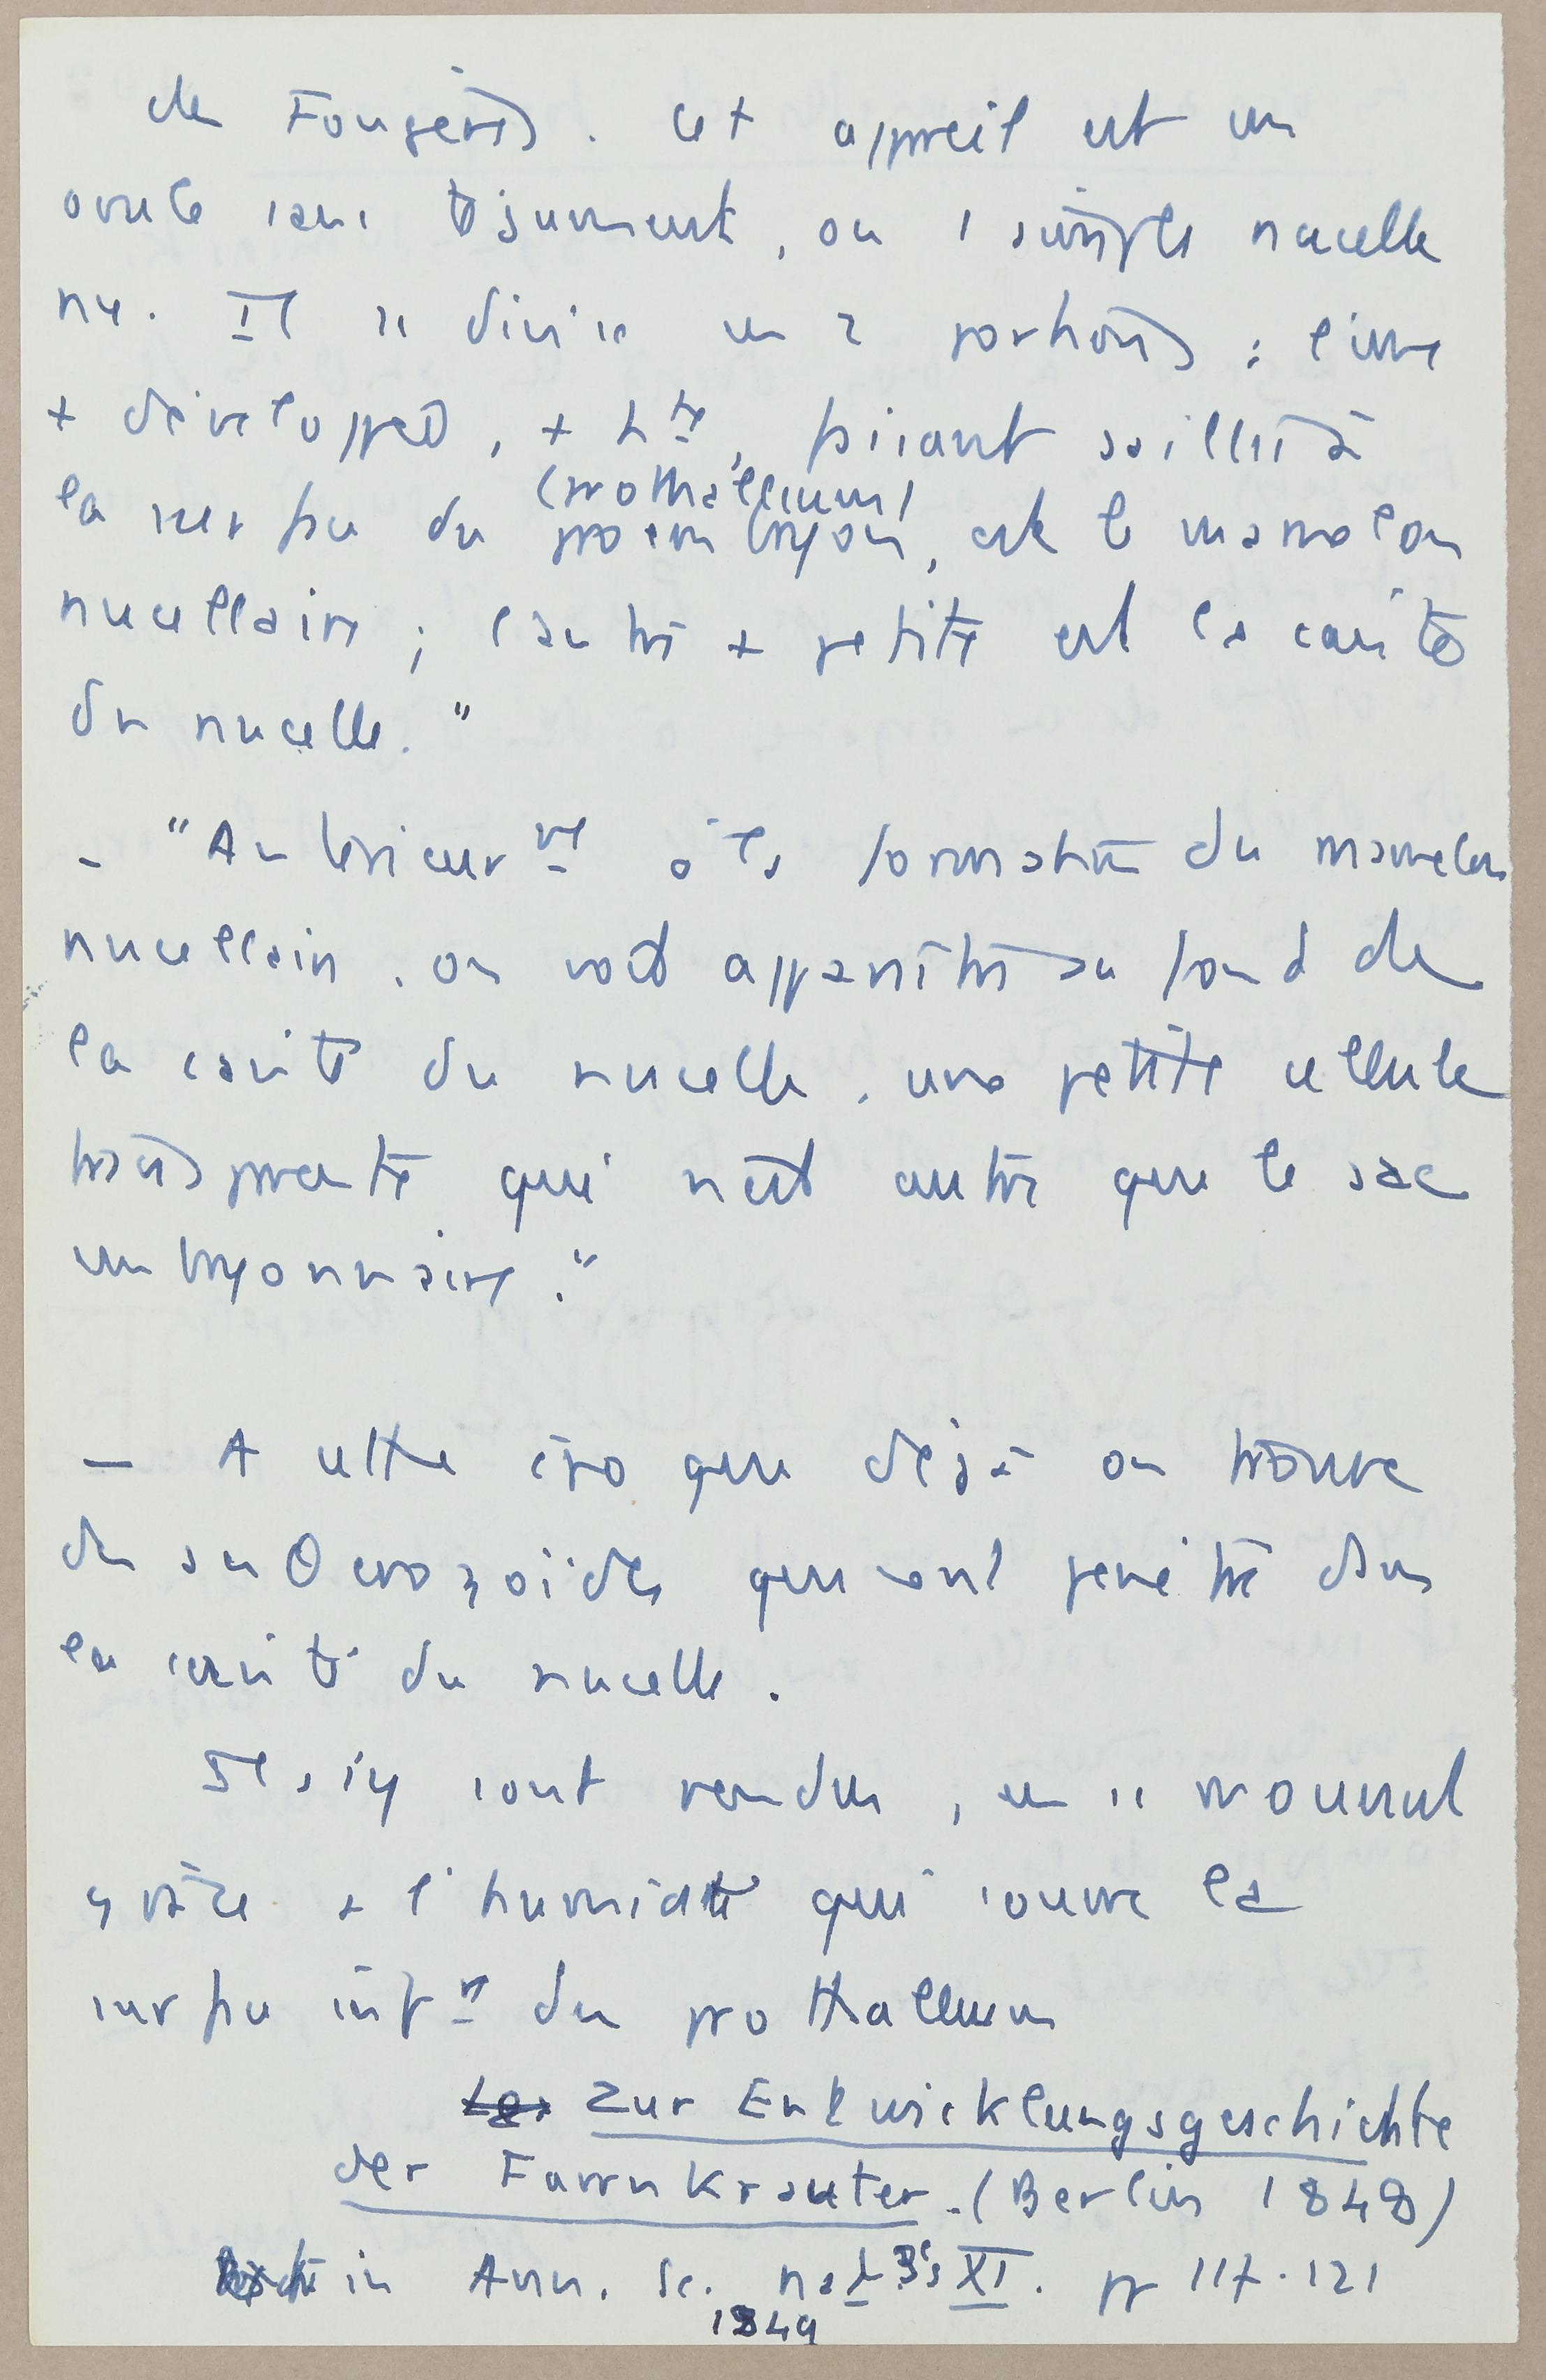 des Fougères. Cet appareil est un
ovule sans tégument, ou 1 simple nucelle
nu. Il se divise en 2 portions : l'une
+ développée, + hte, faisant saillie à
(prothallium)
la surface du proembryon, est le mamelon
nucellaire ; l'autre + petite est la cavité
du nucelle."
- "Antérieurmt à la formation du mamelon
nucellaire, on voit apparaître au fond de
la cavité du nucelle, une petite cellule
transparente qui n'est autre que le sac
embryonnaire."
- A cette épo que déjà on trouve
des anthérozoïdes qui ont pénétré dans
la cavité du nucelle.
Ils s'y sont rendus, en se mouvant
grâce à l'humidité qui couvre la
surface infre du prothallium
Zur Entwicklungsgeschichte
der Farrnkrauter. (Berlin 1848)
in Ann. Sc. nat 3e s XI. pp 117-121
1849